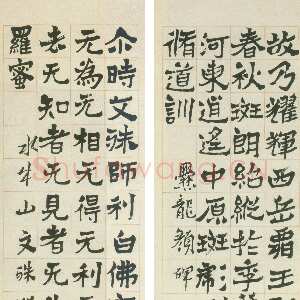 故乃耀輝西岳霸王
春秋斑朗紹縱於季
河東逍遙中原斑彪
脩道訓
爨龍顏碑
尒時文殊師利白佛
无為无相无得无利
去无知者无見者无
羅蜜
水牛山文殊